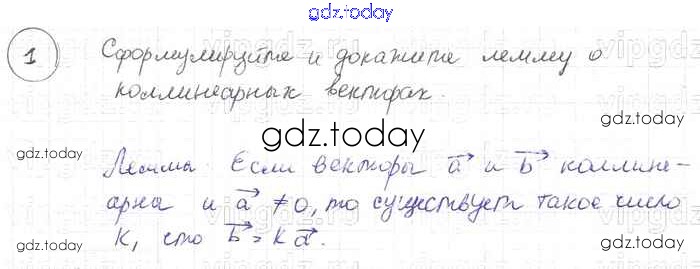 gdz.today
1 Сформулируйте и докажите лемму о
коллинеарных векторах.
gdz.today
Лемма. Если векторы a и b коллине-
арна и a ≠ 0, то существует такое число
k, что b = k a.
gdz.today
gdz.today
gdz.today